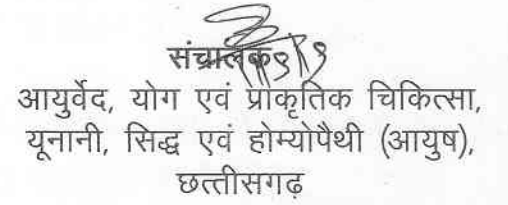 संचालक
आयुर्वेद, योग एवं प्राकृतिक चिकित्सा,
यूनानी, सिद्ध एवं होम्योपैथी (आयुष),
छत्तीसगढ़